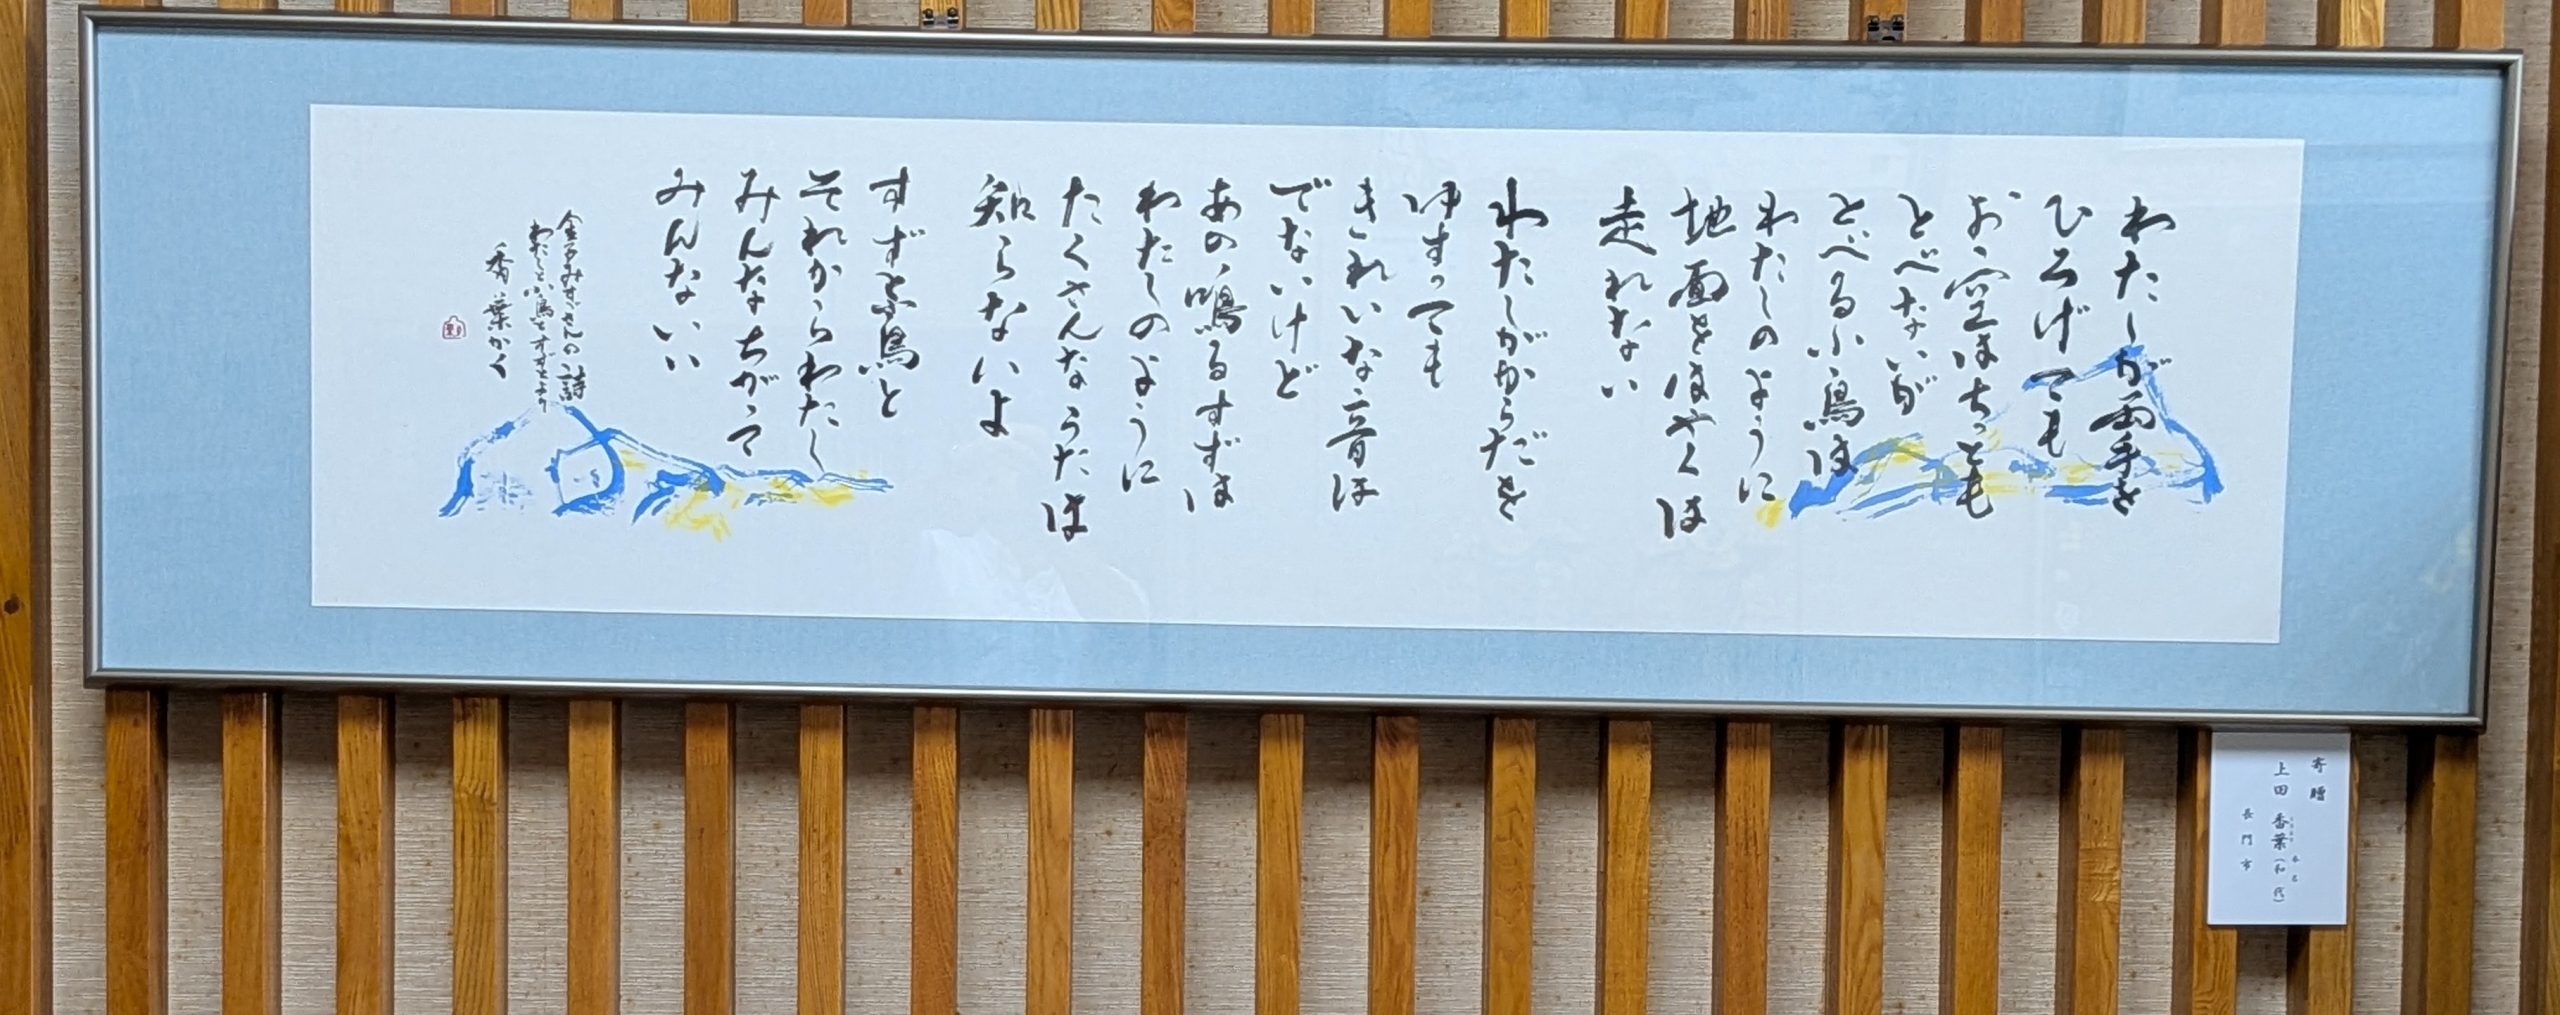 わたしが両手を
ひろげても
お空はちっとも
とべないが
とべる小鳥は
わたしのように
地面をはやくは
走れない
わたしがからだを
ゆすっても
きれいな音は
でないけど
あの鳴るすずは
わたしのように
たくさんなうたは
知らないよ
すずと小鳥と
それからわたし
みんなちがって
みんないい
金子みすゞさんの詩
わたしと小鳥とすずとより
香葉かく
寄贈
上田 香葉(和代)
本名
長門市